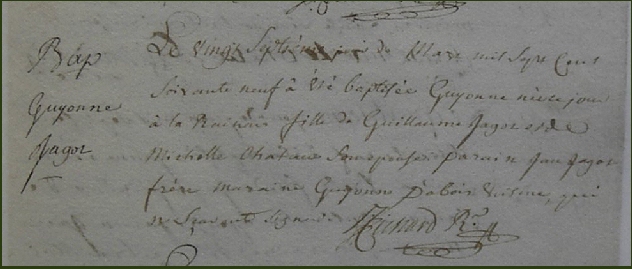 Bap
Guyonne
Jagot
Le vingt septieme jour de Mars mil sept cent
soixante neuf à été baptisée Guyonne née ce jour
à la fille de Guillaume Jagot et de
Michelle son epouse parain Jean Jagot
frère maraine Guyonne qui
ne signer